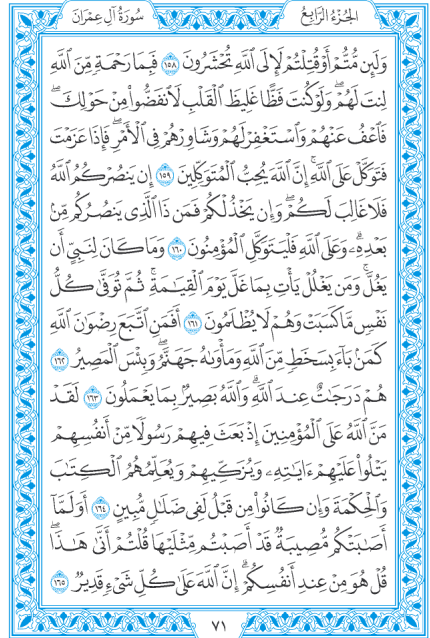 الجُزءُ الرَّابِعُ
سُورَةُ آلِ عِمۡرَانَ
وَلَئِن مُّتُّمۡ أَوۡ قُتِلۡتُمۡ لَإِلَى ٱللَّهِ تُحۡشَرُونَ ١٥٨ فَبِمَا رَحۡمَةٖ مِّنَ ٱللَّهِ
لِنتَ لَهُمۡۖ وَلَوۡ كُنتَ فَظًّا غَلِيظَ ٱلۡقَلۡبِ لَٱنفَضُّواْ مِنۡ حَوۡلِكَۖ
فَٱعۡفُ عَنۡهُمۡ وَٱسۡتَغۡفِرۡ لَهُمۡ وَشَاوِرۡهُمۡ فِي ٱلۡأَمۡرِۖ فَإِذَا عَزَمۡتَ
فَتَوَكَّلۡ عَلَى ٱللَّهِۚ إِنَّ ٱللَّهَ يُحِبُّ ٱلۡمُتَوَكِّلِينَ ١٥٩ إِن يَنصُرۡكُمُ ٱللَّهُ
فَلَا غَالِبَ لَكُمۡۖ وَإِن يَخۡذُلۡكُمۡ فَمَن ذَا ٱلَّذِي يَنصُرُكُم مِّنۢ
بَعۡدِهِۦۗ وَعَلَى ٱللَّهِ فَلۡيَتَوَكَّلِ ٱلۡمُؤۡمِنُونَ ١٦٠ وَمَا كَانَ لِنَبِيٍّ أَن
يَغُلَّۚ وَمَن يَغۡلُلۡ يَأۡتِ بِمَا غَلَّ يَوۡمَ ٱلۡقِيَٰمَةِۚ ثُمَّ تُوَفَّىٰ كُلُّ
نَفۡسٖ مَّا كَسَبَتۡ وَهُمۡ لَا يُظۡلَمُونَ ١٦١ أَفَمَنِ ٱتَّبَعَ رِضۡوَٰنَ ٱللَّهِ
كَمَنۢ بَآءَ بِسَخَطٖ مِّنَ ٱللَّهِ وَمَأۡوَىٰهُ جَهَنَّمُۖ وَبِئۡسَ ٱلۡمَصِيرُ ١٦٢
هُمۡ دَرَجَٰتٌ عِندَ ٱللَّهِۗ وَٱللَّهُ بَصِيرُۢ بِمَا يَعۡمَلُونَ ١٦٣ لَقَدۡ
مَنَّ ٱللَّهُ عَلَى ٱلۡمُؤۡمِنِينَ إِذۡ بَعَثَ فِيهِمۡ رَسُولٗا مِّنۡ أَنفُسِهِمۡ
يَتۡلُواْ عَلَيۡهِمۡ ءَايَٰتِهِۦ وَيُزَكِّيهِمۡ وَيُعَلِّمُهُمُ ٱلۡكِتَٰبَ
وَٱلۡحِكۡمَةَ وَإِن كَانُواْ مِن قَبۡلُ لَفِي ضَلَٰلٖ مُّبِينٍ ١٦٤ أَوَلَمَّآ
أَصَٰبَتۡكُم مُّصِيبَةٞ قَدۡ أَصَبۡتُم مِّثۡلَيۡهَا قُلۡتُمۡ أَنَّىٰ هَٰذَاۖ
قُلۡ هُوَ مِنۡ عِندِ أَنفُسِكُمۡۗ إِنَّ ٱللَّهَ عَلَىٰ كُلِّ شَيۡءٖ قَدِيرٞ ١٦٥
٧١